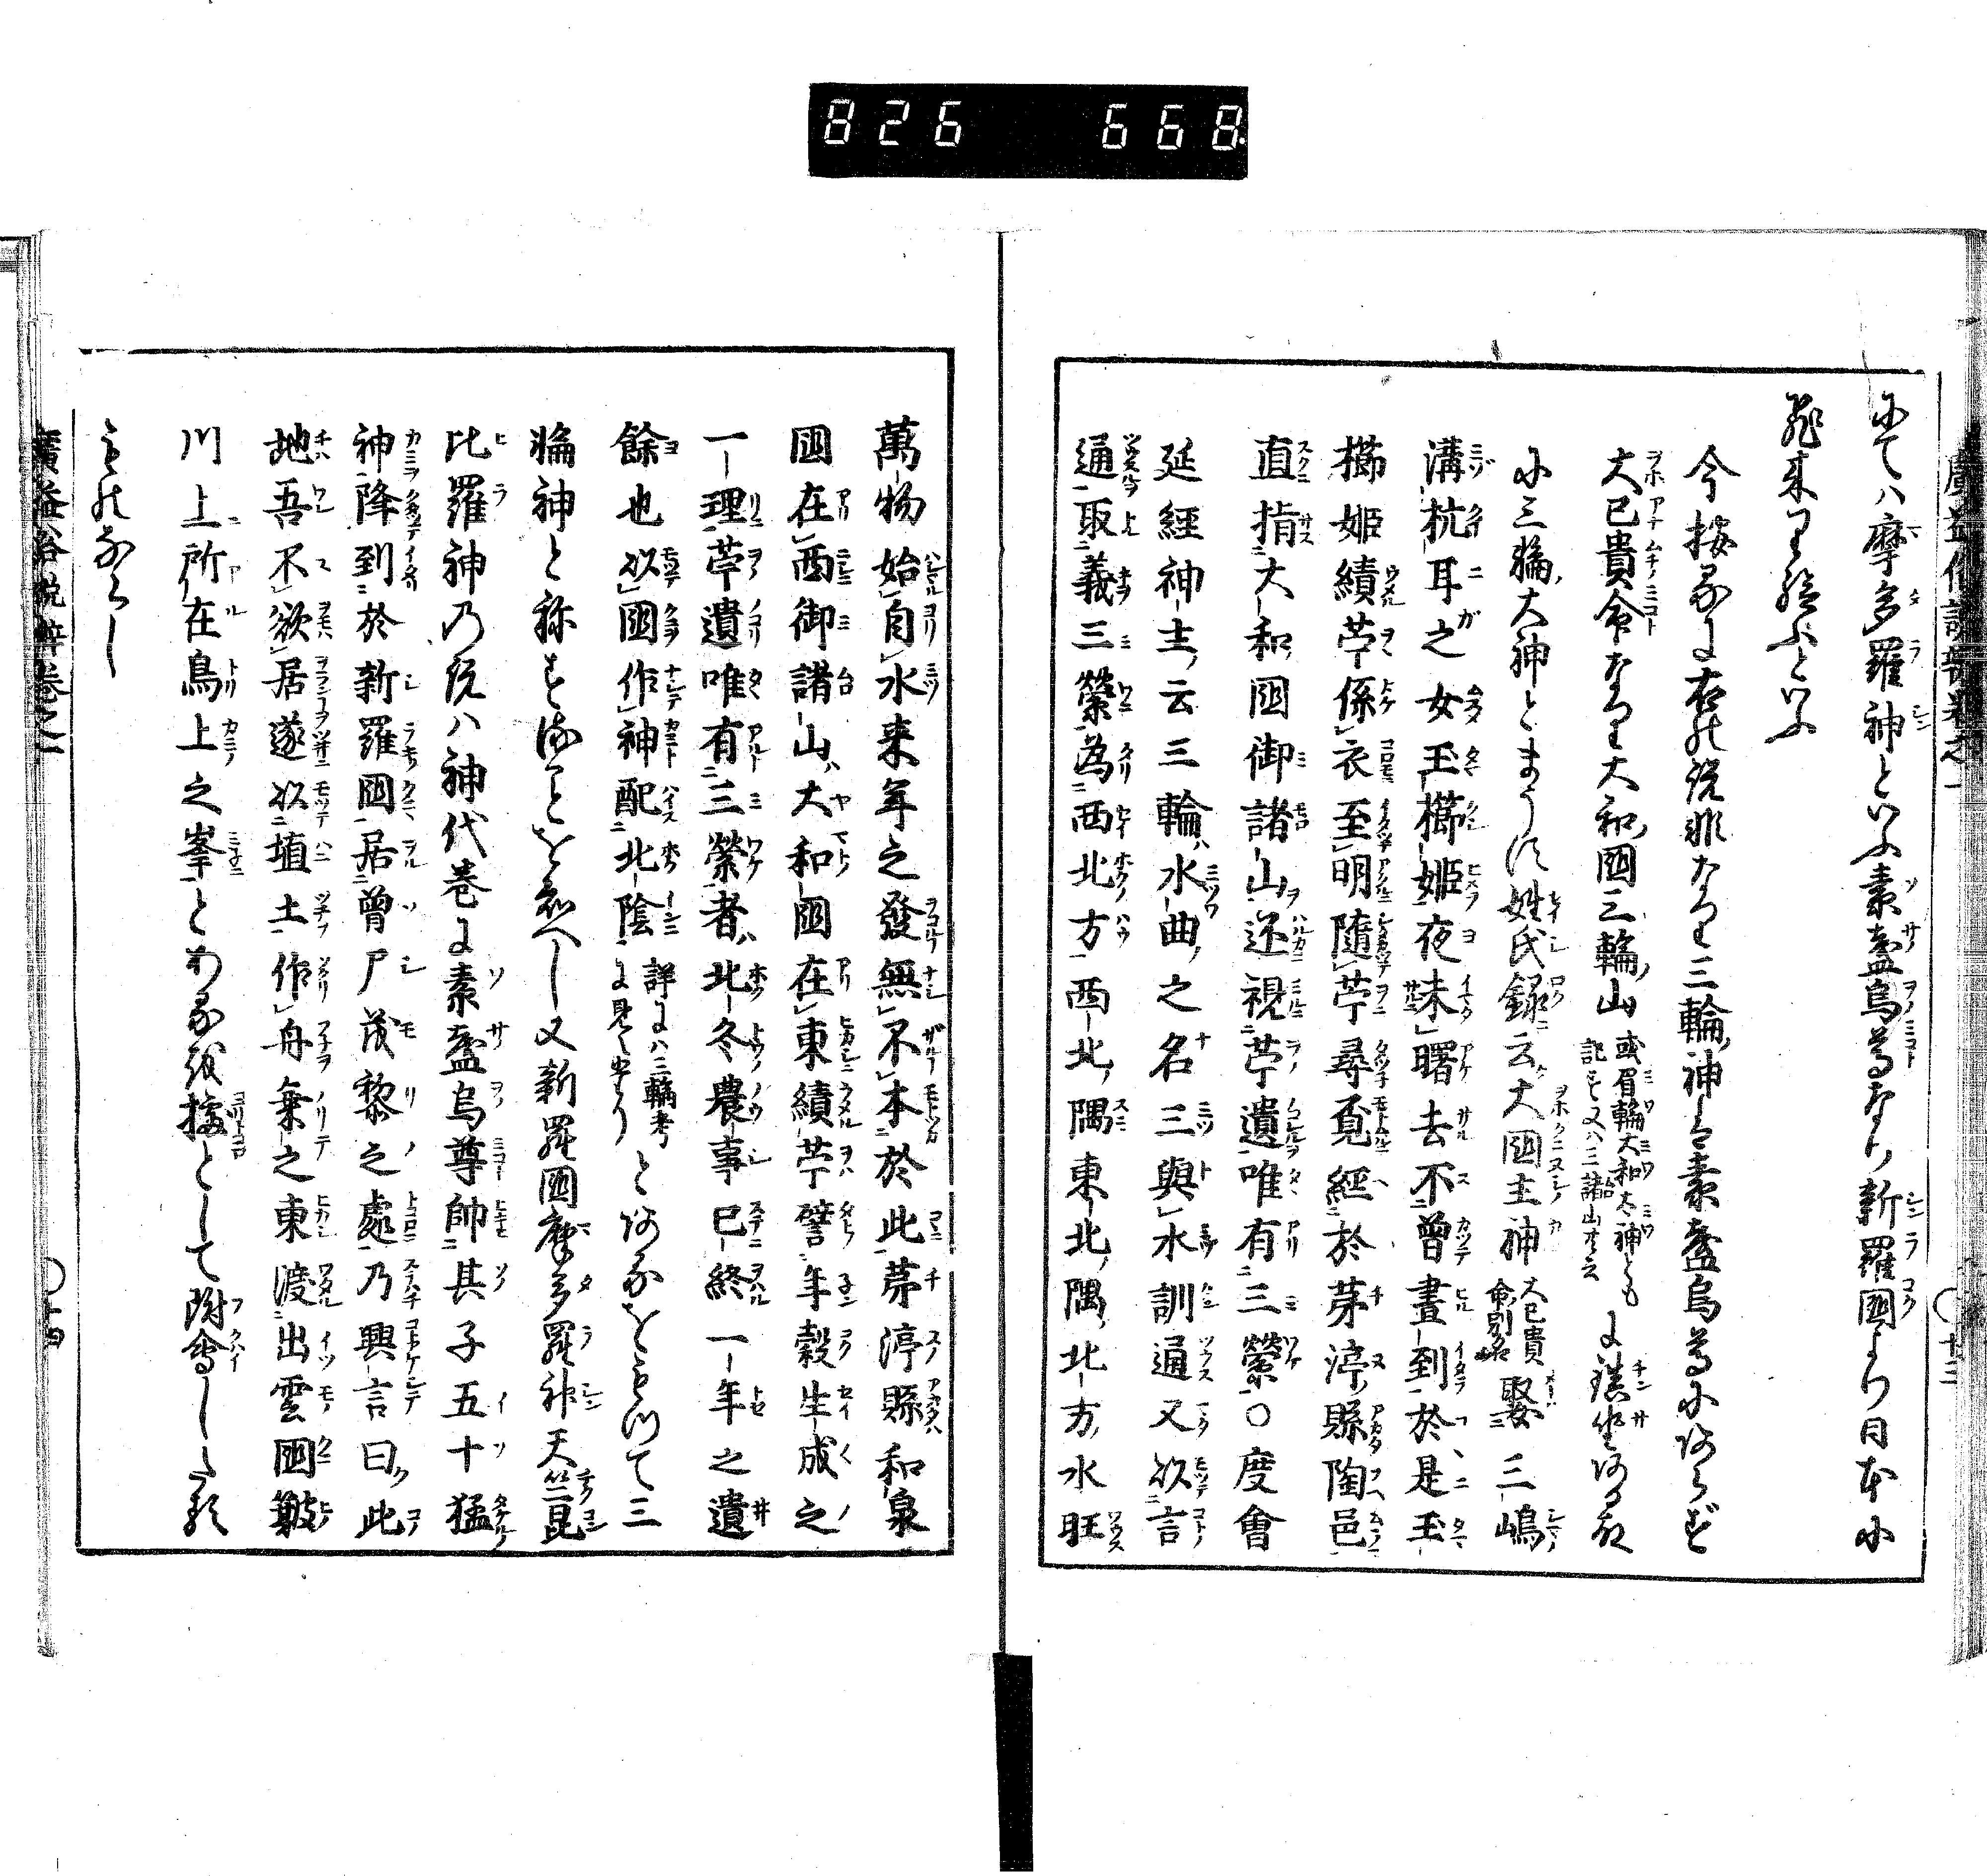 826 668
廣益俗説辯卷之一 十三
にてハ摩多羅神といふ素盞烏尊なり新羅國より日本に
飛来り給ふといふ
今按るに右の説非なり三輪神ハ素盞烏尊にあらず
大已貴命なり大和國三輪山或眉輪大和大神とも記す又ハ三諸山とも云に鎮坐ある故
に三輪大神とまうす姓氏録云大國主神大已貴命別名娶三嶋
溝杭耳之女玉櫛姫夜未曙去不曾晝到於是玉
櫛姫績苧係衣至明隨苧尋覓經於茅渟縣陶邑
直指大和國御諸山還視苧遺唯有三縈○度會
延經神主云三輪ハ水曲之名三與水訓通又以言
通取義三縈為西北方西北隅東北隅北方水旺
萬物始自水来年之發無不本於此茅渟縣和泉
國在西御諸山ハ大和國在東績苧譬年穀生成之
一理苧遺唯有三縈者ハ北冬農事已終一年之遺
餘也以國作神配北陰詳にハ三輪考に見えたりとあるをもつて三
輪神と称することを知べし又新羅國摩多羅神天竺昆
比羅神乃説ハ神代巻に素盞烏尊帥其子五十猛
神降到於新羅國居曾尸茂黎之處乃興言曰此
地吾不欲居遂以埴土作舟乗之東渡出雲國簸
川上所在鳥上之峯とある銭據として附會したる
ものならし
廣益俗説辯卷之一 十四